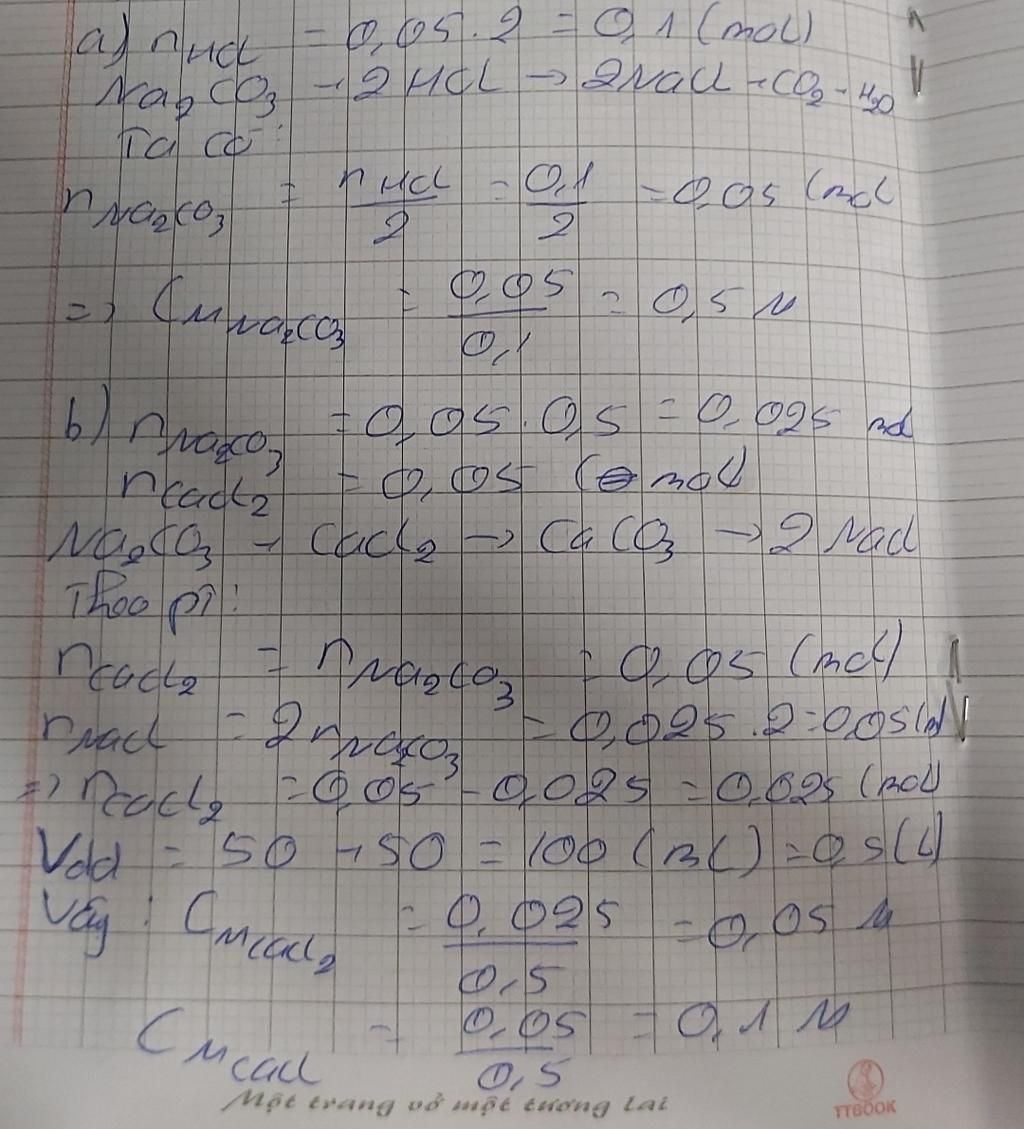 a) nHCl = 0,05 . 2 = 0,1 (mol)
Na2CO3 - 2HCl → 2NaCl - CO2 - H2O
Ta có:
nNa2CO3 = nHCl/2 = 0,1/2 = 0,05 (mol
=> CM Na2CO3 = 0,05/0,1 = 0,5 M
b) nNa2CO3 = 0,05 . 0,5 = 0,025 mol
nCaCl2 = 0,05 (mol)
Na2CO3 - CaCl2 → CaCO3 → 2NaCl
Theo pT:
nCaCl2 = nNa2CO3 = 0,05 (mol)
nNaCl = 2nNa2CO3 = 0,025 . 2 = 0,05 (m
=> nCaCl2 = 0,05 - 0,025 = 0,025 (mol)
Vdd = 50 - 50 = 100 (mL) = 0,5 (L)
Vậy: CM CaCl2 = 0,025/0,5 = 0,05 M
CM CaCl = 0,05/0,5 = 0,1 M
Một trang vở một tương lai
TTBOOK